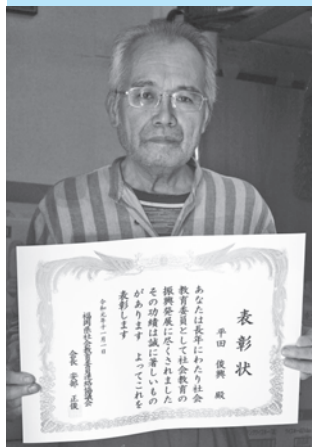 表彰状
半田 俊興 殿
あなたは長年にわたり社会
教育委員として社会教育の
振興発展に尽くされました
その功績は誠に著しいもの
があります よってこれを
表彰します
令和元年十一月一日
福岡県社会教育委員連絡協議会
会長 安部 正俊